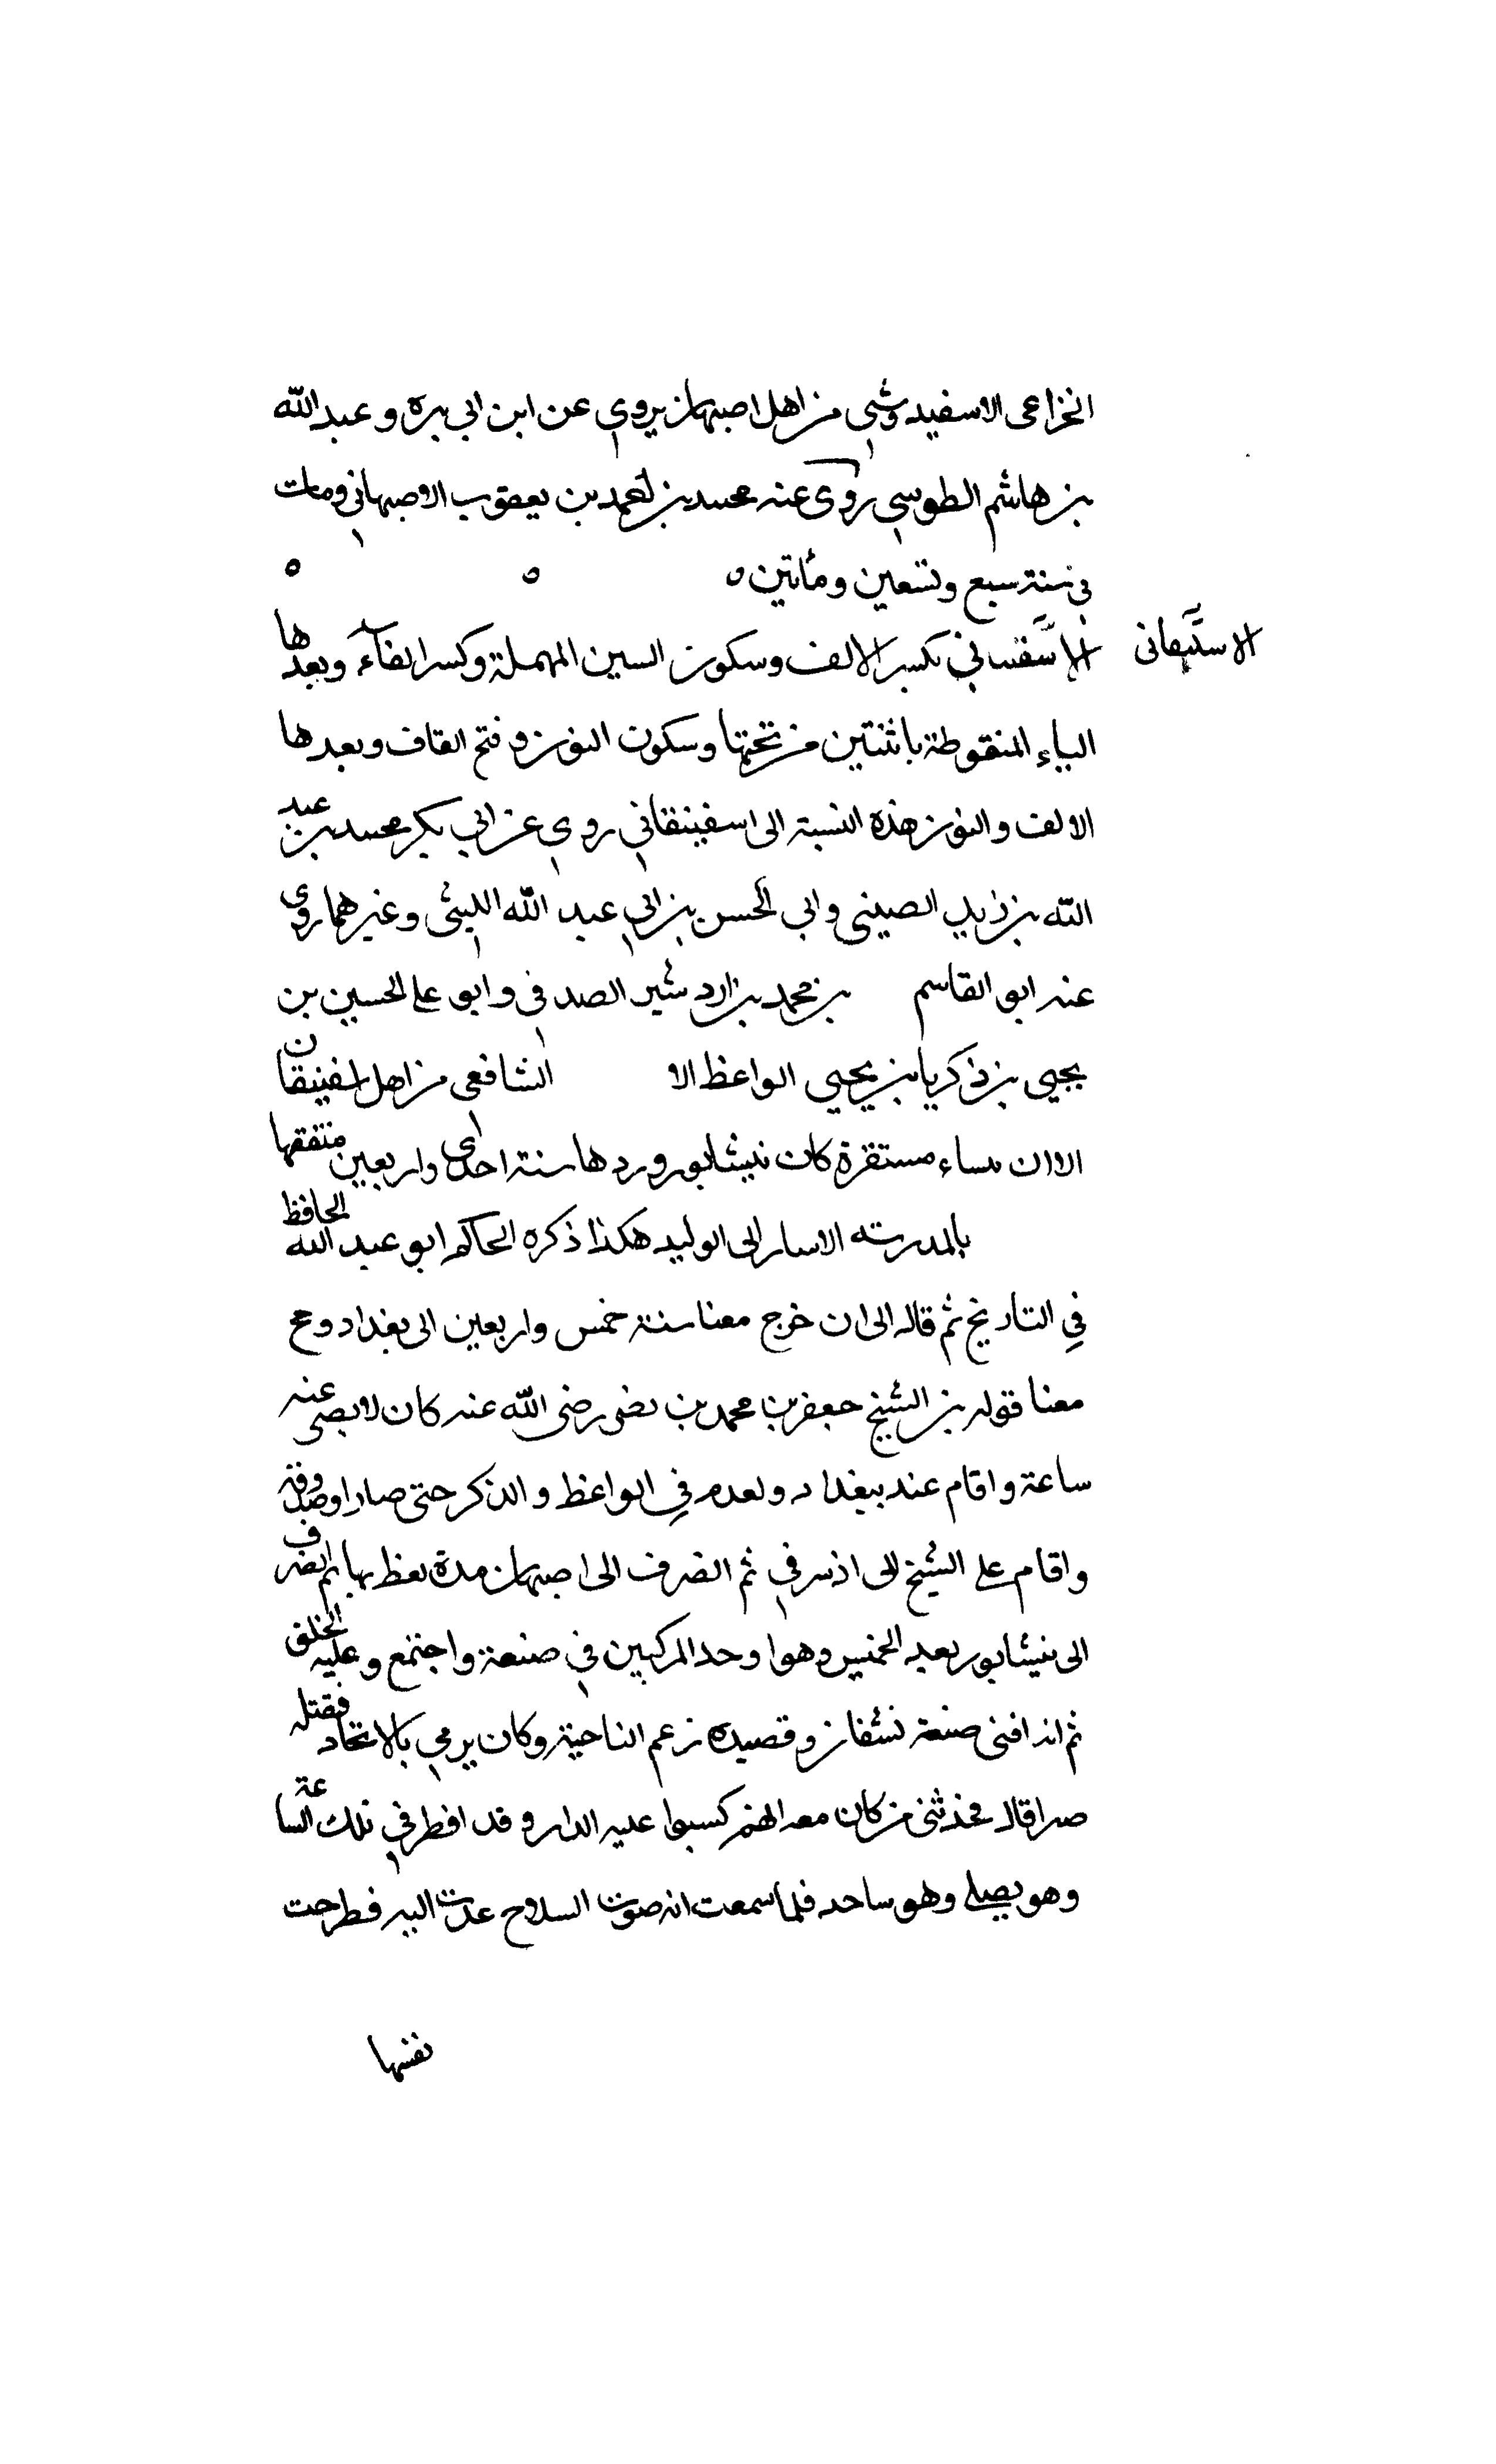 الخزاعى الاسفيد وشي من اهل اصبهان يروي عن ابن ابي بره وعبد الله
بن هاشم الطوسي روى عنه محمد بن احمد بن يعقوب الاصبهاني ومات
في سنة سبع وتسعين ومائتين ه ه ه
الاسفينقاني بكسر الالف وسكون السين المهملة وكسر الفاء وبعدها
الياء المنقوطة باثنتين من تحتها وسكون النون وفتح القاف وبعدها
الالف والنون هذه النسبة الى اسفينقاني روي عن ابي بكر محمد بن عبد
الله بن الصيني وابي الحسن بن ابي عبد الله الليثى وغيرهما روى
عنه ابو القاسم بن محمد بن اردشير الصدفي وابو علي الحسين بن
يحيى بن ذكريا بن يحيي الواعظ الا الشافعى من اهل اسفينيقان
الاان مستقرة كان نيشابور وردها سنة احدى واربعين متفقها
بالمدرسة الى الوليد هكذا ذكره الحاكم ابو عبد الله الحافظ
في التاريخ ثم قال الى ان خرج معنا سنة خمس واربعين الى بغداد وحج
معنا قوله بن الشيخ جعفر بن محمد بن رضى الله عنه كان لا عنه
ساعة واقام عند ببغداد في الواعظ والذكر حتى صار اوحد وقته
واقام على الشيخ الى ثم انصرف الى اصبهان مدة يعظ بها ثم انصرف
الى نيشابور بعد الخمسين وهوا وحد المركبين في صنعة واجتمع وعليه الخلق
ثم انه صنعة وقصيده زعم الناحية وكان يرمي بالالحاد فقتله
صبرا قال فحدثنى من كان معه انهم كسبوا عليه الدار وقد افطر في تلك الساعة
وهو يصلى وهو ساجد فلما سمعت انه صوت السلاح عدت اليه فطرحت
نفسها